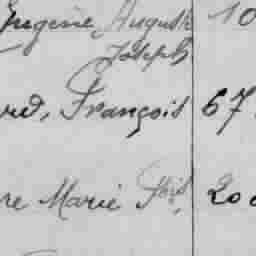 Eugène, Auguste 10
Joseph
ard, François 67
re Marie Fçois, 20